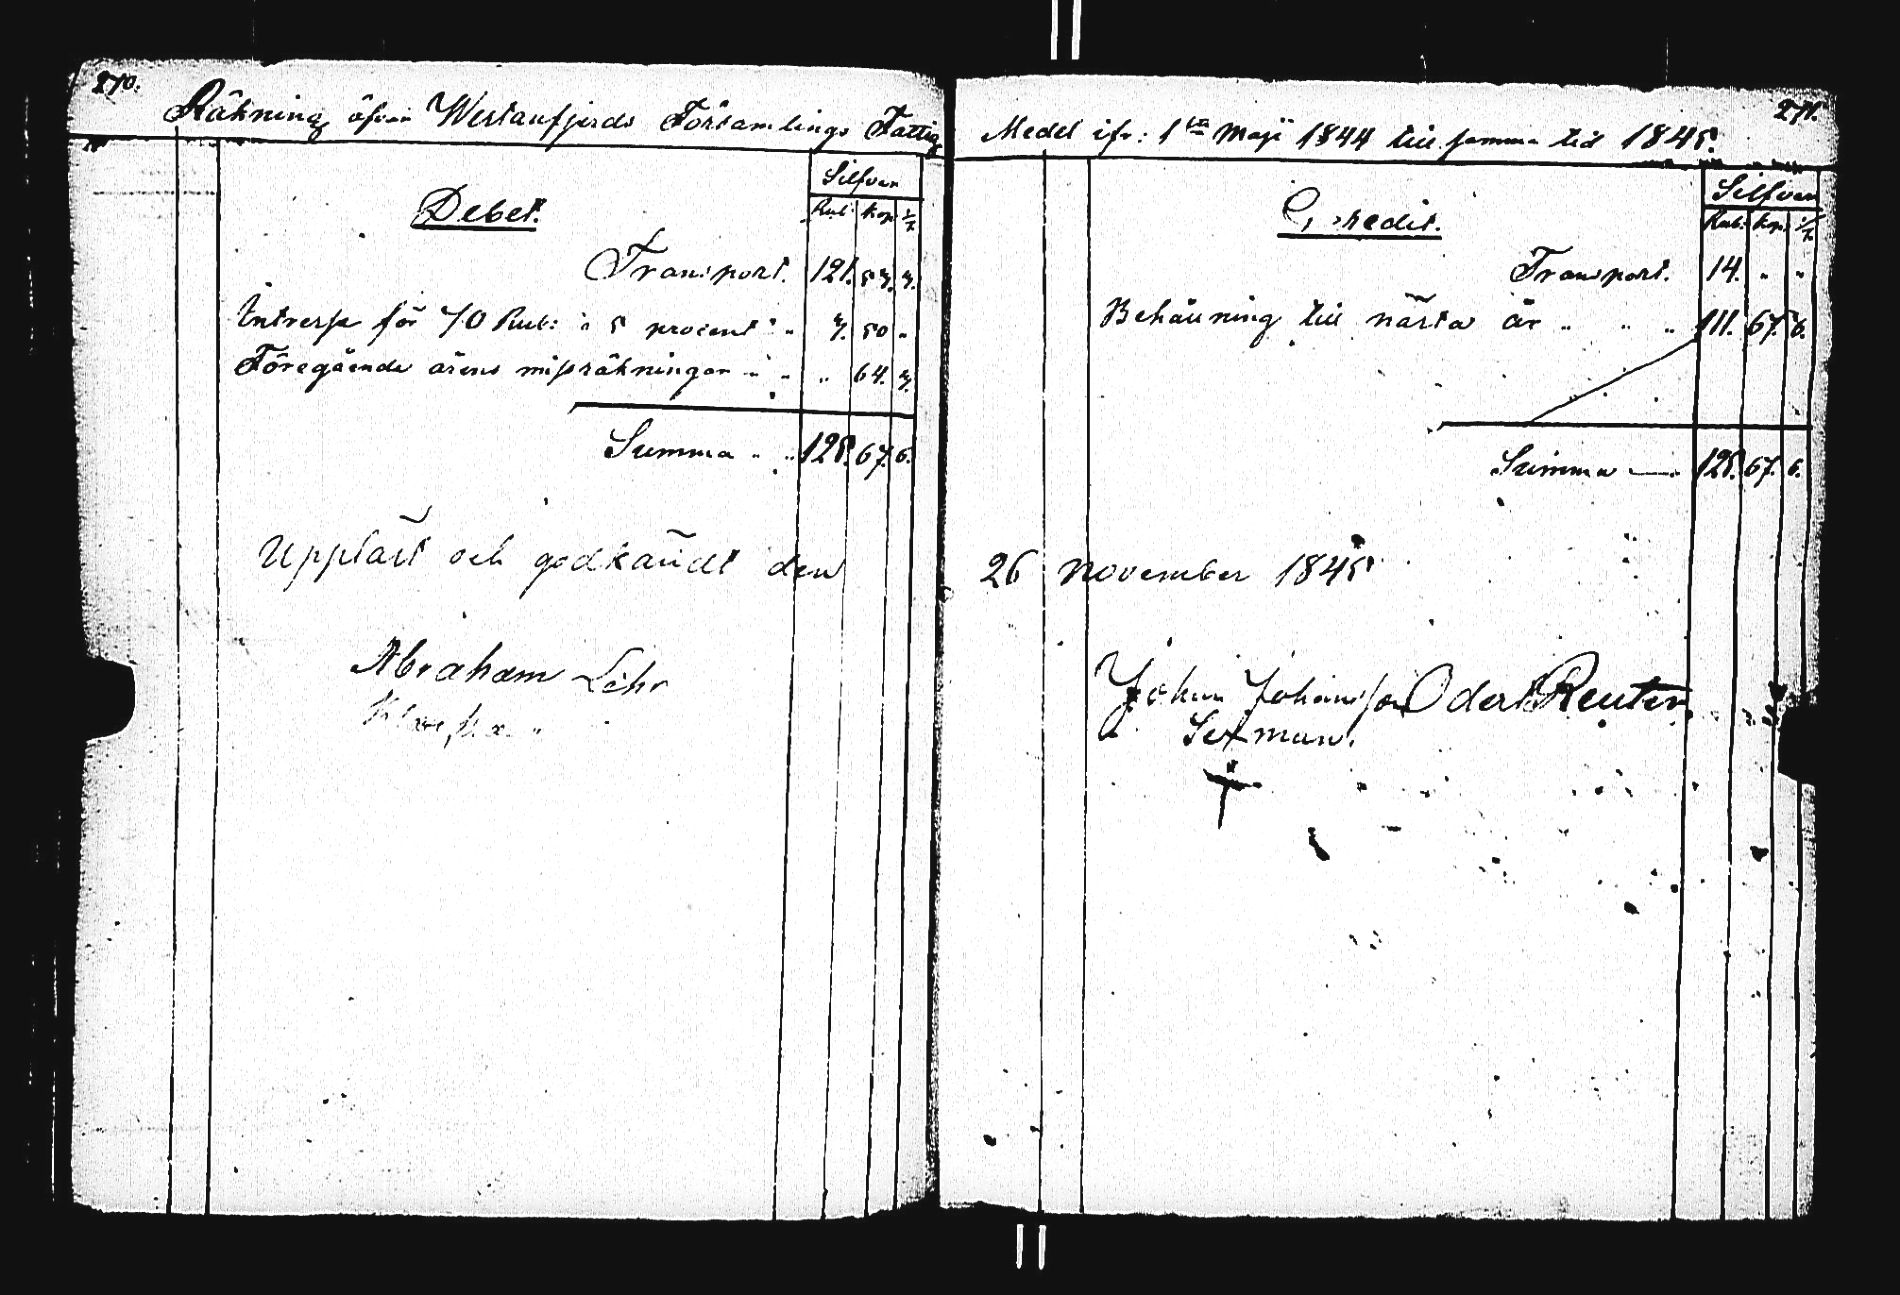 270.
Räkning öfver Westanfjerds Församlings Fattig
Debet.
Silfver
Rub. Kop. 1/7
Transport. 121. 57. 7.
Intresse för 70 Rub: à 5 procent " " 7. 50 "
Föregående årens missräkningar " " " 64. 7.
Summa " " 125. 67. 6.
Upplast och godkändt den
Abraham Löhr
271.
Medel ifr: 1sta Maji 1844 till samma tid 1845.
Credit.
Silfver
Rub. Kop. 1/7
Transport. 14. " "
Behållning till nästa år " " " 111. 67. 6.
Summa — 125. 67. 6.
26 november 1845
Johan Johansson Odert Reuter
Sexman.